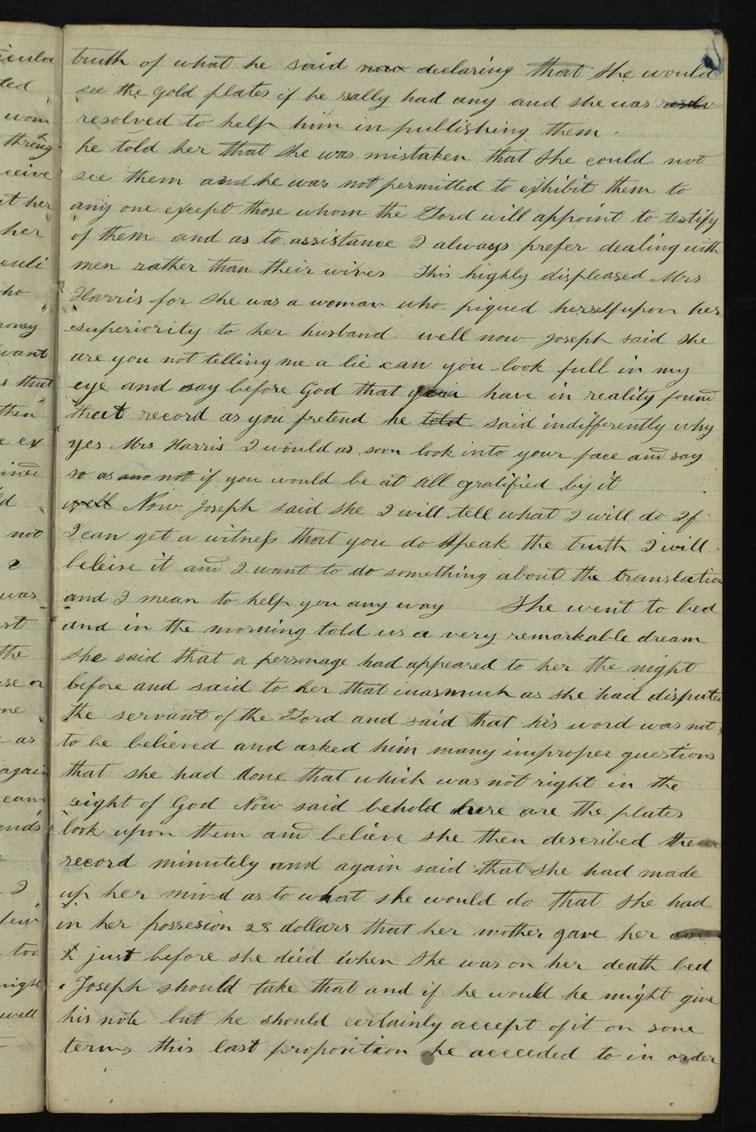 truth of what he said now declaring that she would
see the gold plates if he really had any and she was
resolved to help him in publishing them.
he told her that she was mistaken that she could not
see them and he was not permitted to exhibit them to
any one except those whom the Lord will appoint to testify
of them and as to assistance I always prefer dealing with
men rather than their wives This highly displeased Mrs
Harris for she was a woman who piqued herself upon her
superiority to her husband well now Joseph said she
are you not telling me a lie can you look full in my
eye and say before God that you have in reality found
that record as you pretend he told said indifferently why
yes Mrs Harris I would as soon look into your face and say
so as not if you would be at all gratified by it
well Now Joseph said she I will tell what I will do If
I can get a witness that you do speak the truth I will
beleive it and I want to do something about the translation
and I mean to help you any way She went to bed
and in the morning told us a very remarkable dream
she said that a personage had appeared to her the night
before and said to her that inasmuch as she had disputed
the servant of the Lord and said that his word was not
to be believed and asked him many improper questions
that she had done that which was not right in the
sight of God Now said behold here are the plates
look upon them and believe she then described the
record minutely and again said that she had made
up her mind as to what she would do that she had
in her possesion 28 dollars that her mother gave her
just before she died when she was on her death bed
Joseph should take that and if he would he might give
his note but he should certainly accept of it on some
terms this last proposition he acceeded to in order